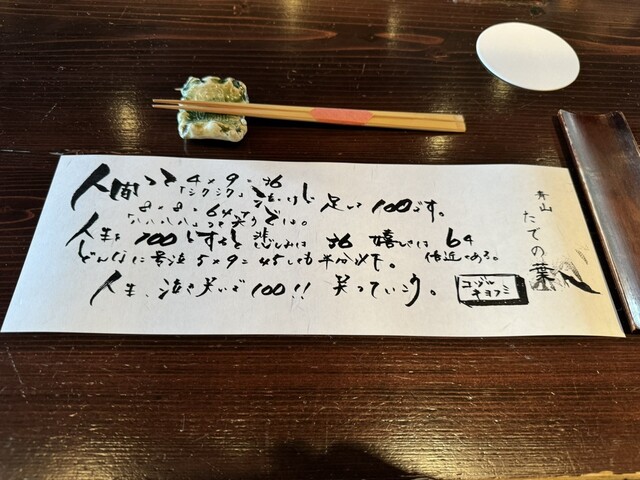 人間って4×9=36
「シクシク」泣いたり
8×8=64で
「ハハハハ」って笑う
足して100です。
人生を100とすると悲しみは36嬉しさは64
どんなに号泣5×9=45しても半分以下。倍近くある。
人生、泣き笑いで100!!笑っていこう。
コジル
チヨフミ
青山
たでの葉